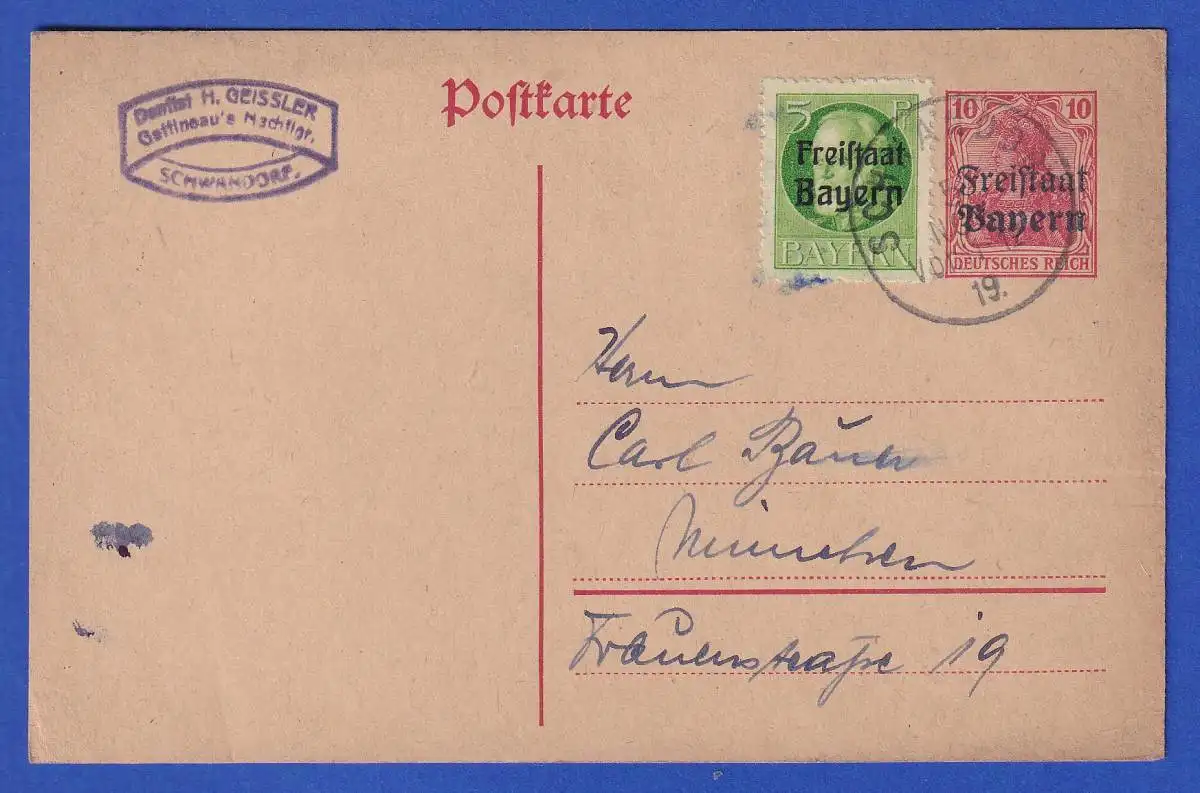 Dentist H. GEISSLER
Gattineau's Nachflgr.
SCHWANDORF.
Postkarte
5 P
Freistaat
Bayern
BAYERN
10 10
Freistaat
Bayern
DEUTSCHES REICH
VOR
19.
Herrn
Carl Bauer
München
Frauenstraße 19